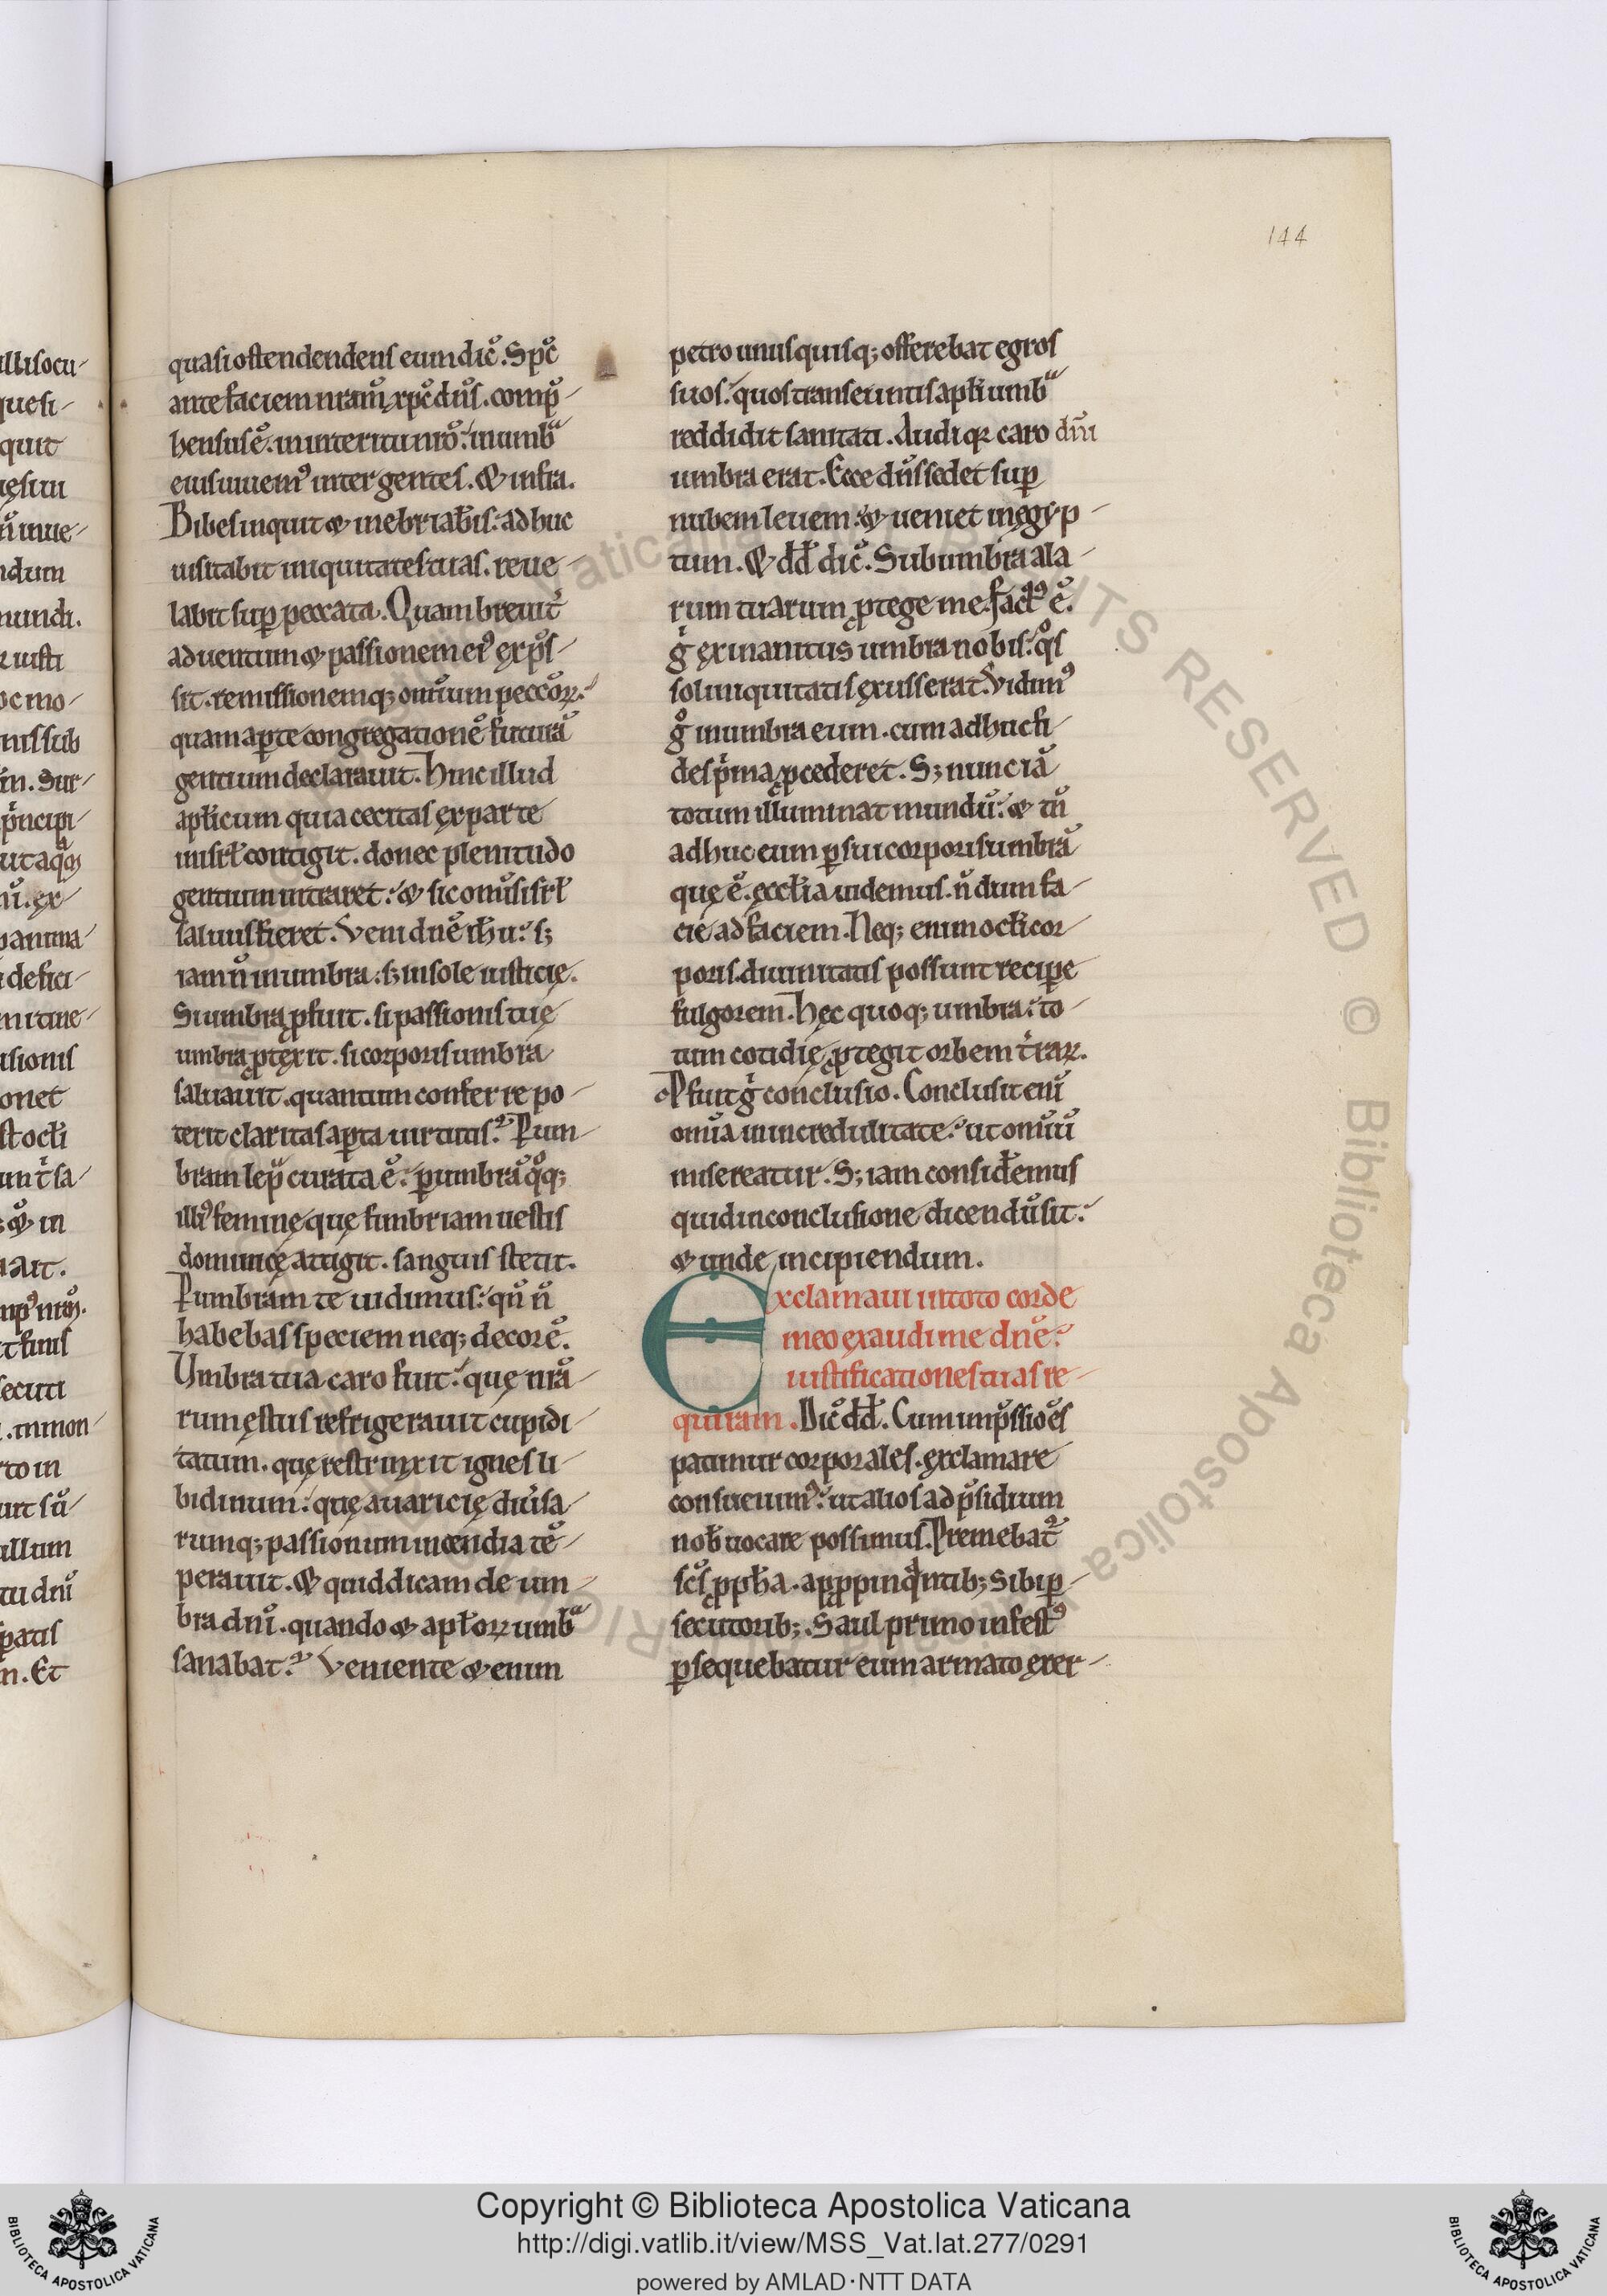 144
quasi ostendendens eum dic̄. Sp̄c
ante faciem nr̄am xp̄c dn̄s. comp̄
hensus ē. in interitu nr̄o: in umbͣ
eius uiuemꝰ inter gentes. & infra.
Bibes inquit & inebriab̄is: ad huc
uisitabit iniquitates tuas. reue
labit suꝑ peccata. Quam breuit̄
aduentum & passionem eiꝰ exp̄s
sit. remissionemq; omn̄ium pecc̄oꝝ:
quam aꝑte congregationē futurā
gentium declarauit. Hinc illud
apl̄icum quia cecitas ex parte
in isrl̄ contigit. donec plenitudo
gentium intraret: & sic omn̄s isrl̄
saluus fieret. Veni dn̄e ih̄u: s;
iam n̄ in umbra: s; in sole iusticię.
Si umbra ꝓfuit. si passionis tuę
umbra ꝓtexit. si corporis umbra
saluauit. quantum conferre po
terit claritas aꝑta uirtutis? Ꝑ um
bram lep̄ curata ē: ꝑ umbrā qͦq;
illiꝰ feminę quę fimbriam uestis
dominicę attigit. sanguis stetit.
Ꝑ umbram te uidimus: qn̄ n̄
habebas speciem neq; decorē.
Umbra tua caro fuit: quę nr̄a
rum ęstus refrigerauit cupidi
tatum. quę restrinxit ignes li
bidinum: quę auaricię diu̾sa
rumq; passionum incendia tē
perauit. & quid dicam de um
bra dn̄i. quando & apl̄oꝝ umbͣ
sanabat? Veniente & enim
petro unusquisq; offerebat egros
suos: quos transeuntis apl̄i umbͣ
reddidit sanitati. Audi qꝛ caro dn̄i
umbra erat. Ecce dn̄s sedet suꝑ
nubem leuem: & ueniet in egyp
tum. & dd̄ dic̄. Sub umbra ala
rum tuarum ꝓtege me. Factꝰ ē.
gͥ exinanitus umbra nobis: qͦs
sol iniquitatis exusserat. Vidimꝰ
gͦ in umbra eum. cum adhuc fi
des pͥma ꝓcederet. S; nunc iā
totum illuminat mundū: & tn̄
adhuc eum ꝑ sui corporis umbrā
quę ē. eccl̄ia uidemus. n̄dum fa
cie ad faciem. Neq; enim ocl̄i cor
poris. diuinitatis possunt reciꝑe
fulgorem. Hęc quoq; umbra: to
tum cotidię ꝓtegit orbem tr̄aꝝ.
Ꝓfuit gͥ conclusio. Conclusit enī
omn̄ia in incredulitate: ut omn̄iū
misereatur. S; iam consid̄emus
quid in conclusione dicendū sit:
& unde incipiendum.
Exclamaui in toto corde
meo exaudi me dn̄e:
iustificationes tuas re
quiram. Dic̄ dd̄. Cum imp̄ssiōes
patimur corporales. exclamare
consueuimꝰ: ut alios ad p̄sidium
nob̄ uocare possimus. Premebat᷑
sc̄s ꝓph̄a. apꝓpinqͣntib; sibi ꝑ
secutorib;. Saul primo infestꝰ
ꝑsequebatur eum armato exer
Copyright © Biblioteca Apostolica Vaticana
http://digi.vatlib.it/view/MSS_Vat.lat.277/0291
powered by AMLAD·NTT DATA